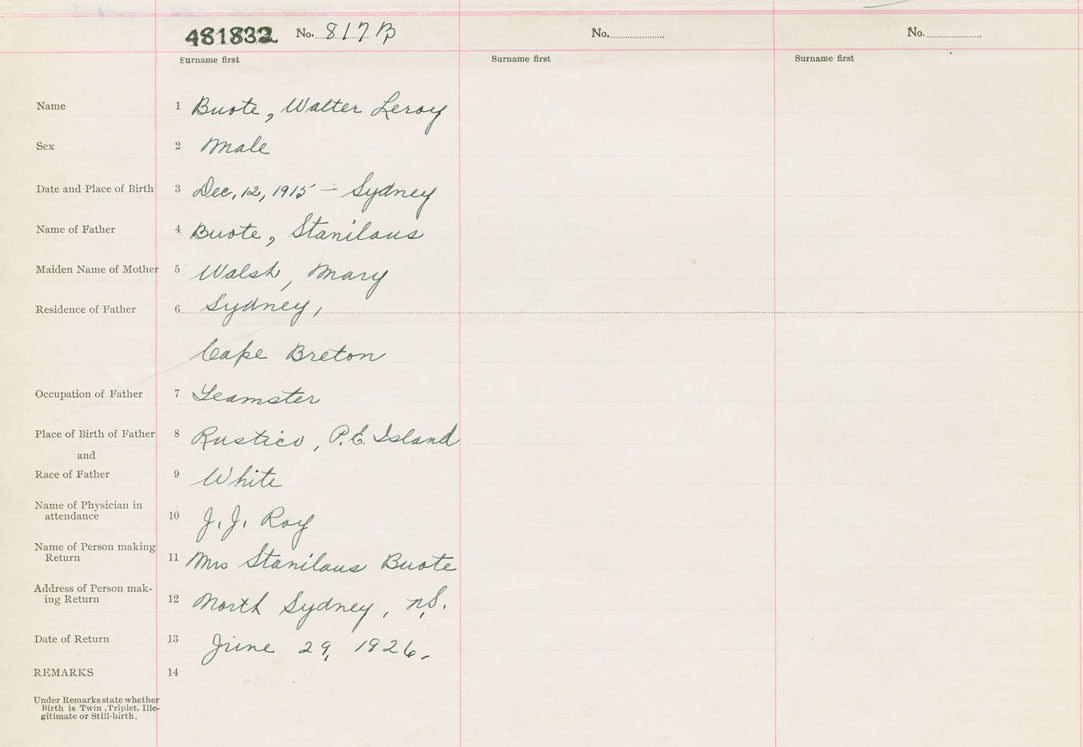 481832 No. 817 B No. No.
Surname first Surname first Surname first
Name 1 Buote, Walter Leroy
Sex 2 Male
Date and Place of Birth 3 Dec, 12, 1915 – Sydney
Name of Father 4 Buote, Stanilaus
Maiden Name of Mother 5 Walsh, Mary
Residence of Father 6 Sydney,
Cape Breton
Occupation of Father 7 Teamster
Place of Birth of Father 8 Rustico, P.E. Island
and
Race of Father 9 White
Name of Physician in
attendance 10 J. J. Roy
Name of Person making
Return 11 Mrs Stanilaus Buote
Address of Person mak-
ing Return 12 North Sydney, N.S.
Date of Return 13 June 29, 1926.
REMARKS 14
Under Remarks state whether
Birth is Twin, Triplet, Ille-
gitimate or Still-birth.